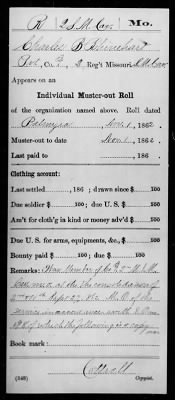 R | 2 S.M. Cav. | Mo.
Charles Rhinehart
Pvt, Co. , 2 Reg't Missouri S.M. Cav.
Appears on an
Individual Muster-out Roll
of the organization named above. Roll dated
Palmyra Nov 1, 1862.
Muster-out to date Nov 1, 1862.
Last paid to , 186 .
Clothing account:
Last settled , 186 ; drawn since $ 100
Due soldier $ 100; due U. S. $ 100
Am't for cloth'g in kind or money adv'd $ 100
Due U. S. for arms, equipments, &c., $ 100
Bounty paid $ 100; due $ 100
Remarks: Was Member of Co. 2" M.S.M.
Cav. M.O. at the consolidation of
Sept 27, 62. M.O. of the
Service in accordance with S.O. No.
of which the following is a copy
Book mark:
Caldwell
(348) Copyist.